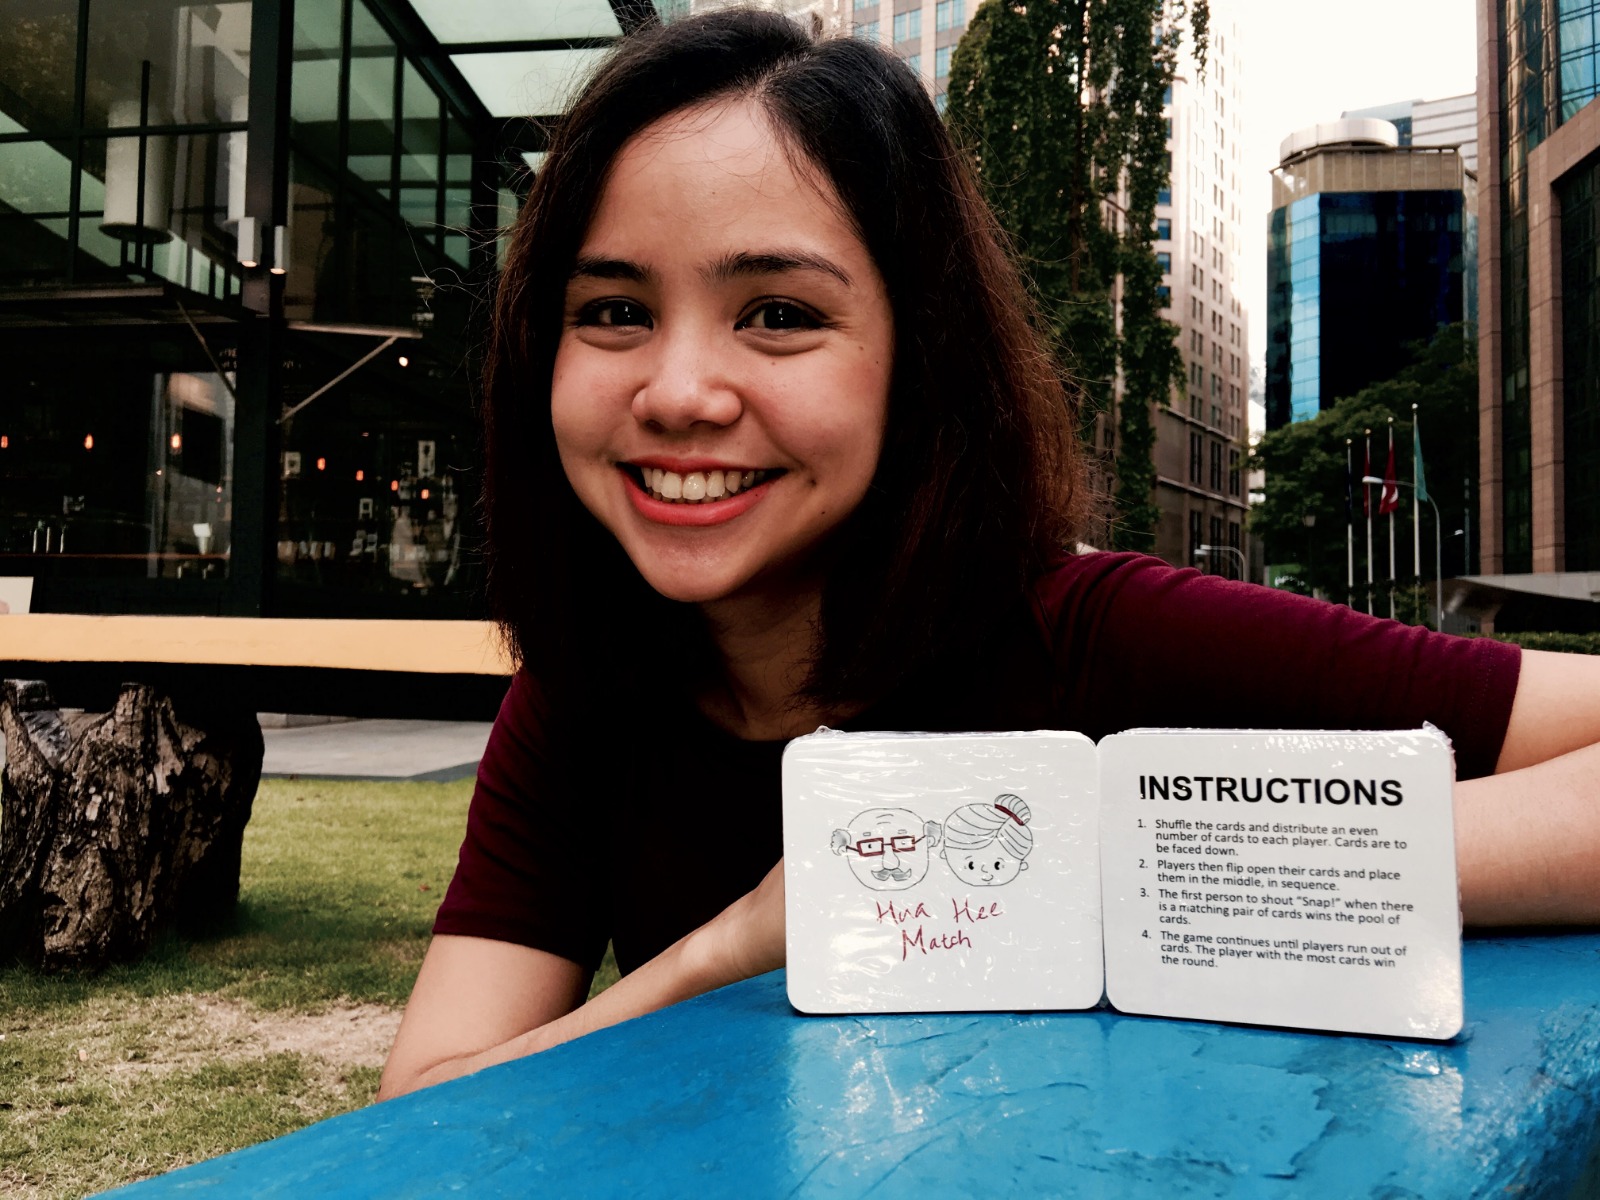 Hua Hee
Match
INSTRUCTIONS
1. Shuffle the cards and distribute an even
number of cards to each player. Cards are to
be faced down.
2. Players then flip open their cards and place
them in the middle, in sequence.
3. The first person to shout "Snap!" when there
is a matching pair of cards wins the pool of
cards.
4. The game continues until players run out of
cards. The player with the most cards win
the round.